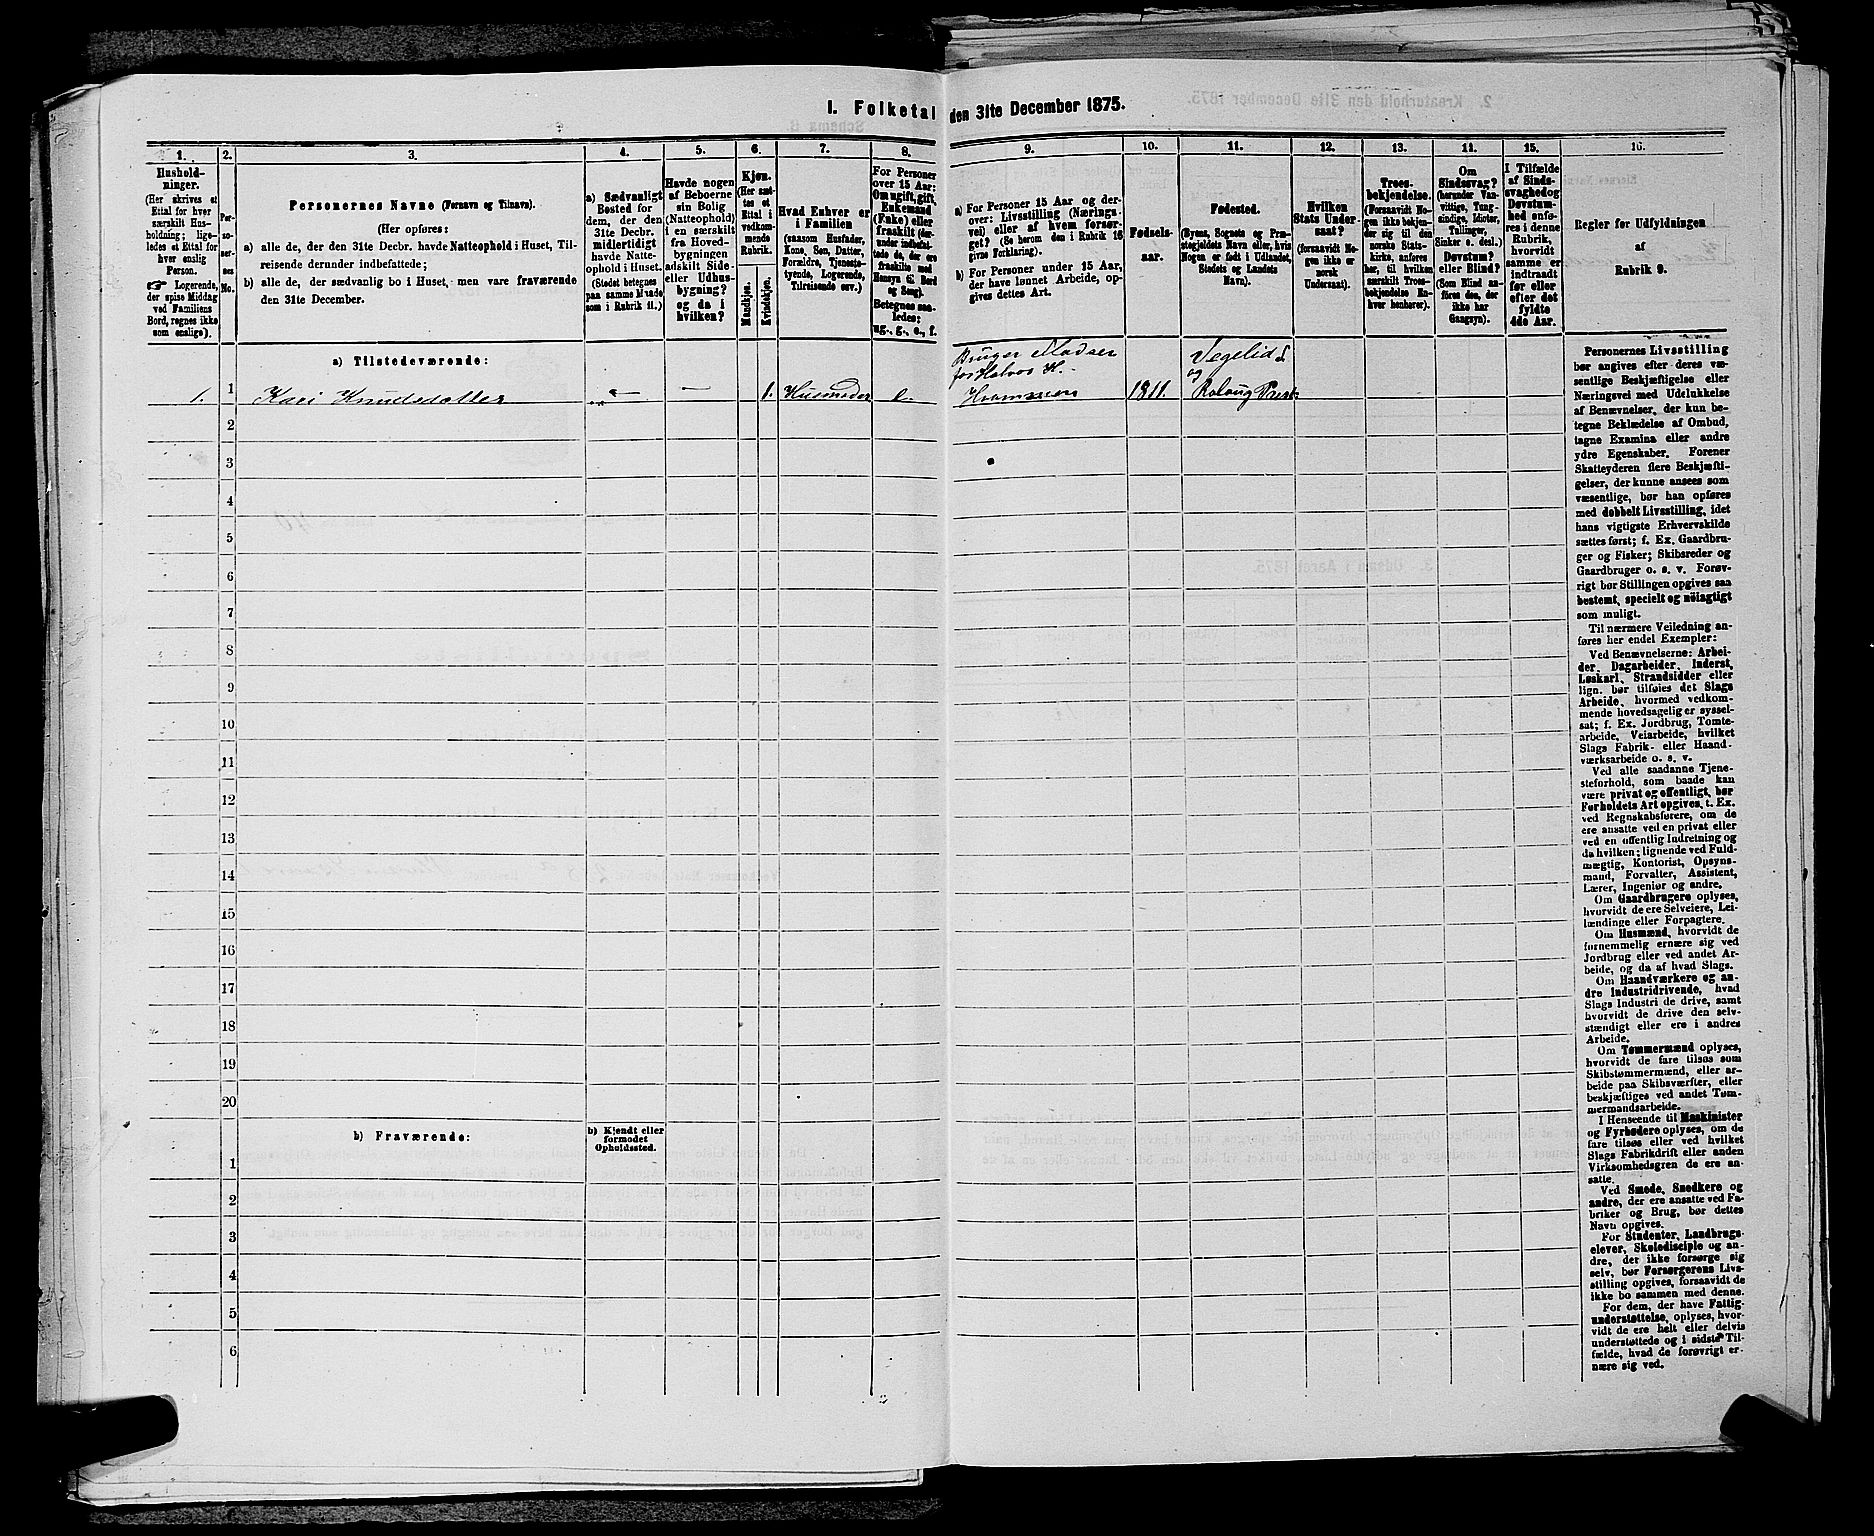 1. Folketal den 31te December 1875.
1.
2.
3.
4.
5.
6.
7.
8.
9.
10.
11.
12.
13.
14.
15.
16.
Hushold-
ninger.
(Her skrives et
Ettal for hver
særskilt Hus-
holdning; lige-
ledes et Ettal for
hver enslig
Person.
☞ Logerende,
der spise Middag
ved Familiens
Bord, regnes ikke
som enslige).
Per-
so-
ner-
nes
No.
Personernes Navne (Fornavn og Tilnavn).
(Her opføres:
a) alle de, der den 31te Decbr. havde Natteophold i Huset, Til-
reisende derunder indbefattede;
b) alle de, der sædvanlig bo i Huset, men vare fraværende
den 31te December.
a) Sædvanligt
Bosted for
dem, der den
31te Decbr.
midlertidigt
havde Natte-
ophold i Huset.
(Stedet betegnes
paa samme Maade
som i Rubrik 11.)
Havde nogen
af Beboerne
sin Bolig
(Natteophold)
i en særskilt
fra Hoved-
bygningen
adskilt Side-
eller Udhus-
bygning?
og da i
hvilken?
Kjøn.
(Her sæt-
tes et
Ettal i
vedkom-
mende
Rubrik.
Mandkjøn.
Kvindekjøn.
Hvad Enhver er
i Familien
(saasom Husfader,
Kone, Søn, Datter,
Forældre, Tjeneste-
tyende, Logerende,
Tilreisende osv.)
For Personer
over 15 Aar:
Om ugift, gift,
Enkemand
(Enke) eller
fraskilt (der-
under indbefat-
tede de, der ere
fraskilte med
Hensyn til Bord
og Seng).
Betegnes saa-
ledes:
ug., g., e., f.
a) For Personer 15 Aar og der-
over: Livsstilling (Nærings-
vei) eller af hvem forsør-
get? (Se herom den i Rubrik 16
givne Forklaring).
b) For Personer under 15 Aar,
der have lønnet Arbeide, op-
gives dettes Art.
Fødsels-
aar.
Fødested.
(Byens, Sognets og Præ-
stegjeldets Navn eller, hvis
Nogen er født i Udlandet,
Stedets og Landets
Navn).
Hvilken
Stats Under-
saat?
(forsaavidt No-
gen ikke er
norsk
Undersaat).
Troes-
bekjendelse.
(Forsaavidt No-
gen ikke bekjen-
der sig til den
norske Stats-
kirke, anføres
her, til hvilken
særskilt Troes-
bekjendelse En-
hver henhører).
Om
Sindssvag?
(herunder Van-
vittige, Tung-
sindige, Idioter,
Tullinger,
Sinker o. desl.)
Døvstum?
eller Blind?
(Som Blind an-
føres den, der
ikke har
Gangsyn).
I Tilfælde
af Sinds-
svaghed og
Døvstum-
hed anfø-
res i denne
Rubrik,
hvorvidt
samme er
indtraadt
før eller
efter det
fyldte
4de Aar.
Regler for Udfyldningen
af
Rubrik 9.
a) Tilstedeværende:
1. 1 Kari Knudsdatter — — 1. Husmoder e. Bruger Pladsen
for Halvor H.
Hvammen 1811. Vegelid S.
og Rolaug Præst.
2
3
4
5
6
7
8
9
10
11
12
13
14
15
16
17
18
19
20
b) Fraværende:
b) Kjendt eller
formodet
Opholdssted.
1
2
3
4
5
6
Personernes Livsstilling
bør angives efter deres væ-
sentlige Beskjæftigelse eller
Næringsvei med Udelukkelse
af Benævnelser, der kun be-
tegne Beklædelse af Ombud,
tagne Examina eller andre
ydre Egenskaber. Forener
Skatteyderen flere Beskjæfti-
gelser, der kunne ansees som
væsentlige, bør han opføres
med dobbelt Livsstilling, idet
hans vigtigste Erhvervskilde
sættes først; f. Ex. Gaardbru-
ger og Fisker; Skibsreder og
Gaardbruger o. s. v. Forøv-
rigt bør Stillingen opgives saa
bestemt, specielt og nøiagtigt
som muligt.
Til nærmere Veiledning an-
føres her endel Exempler:
Ved Benævnelserne: Arbei-
der, Dagarbeider, Inderst,
Løskarl, Strandsidder eller
lign. bør tilføies det Slags
Arbeide, hvormed vedkom-
mende hovedsagelig er syssel-
sat; f. Ex. Jordbrug, Tomte-
arbeide, Veiarbeide, hvilket
Slags Fabrik- eller Haand-
værksarbeide o. s. v.
Ved alle saadanne Tjene-
steforhold, som baade kan
være privat og offentligt, bør
Forholdets Art opgives, t. Ex.
ved Regnskabsførere, om de
ere ansatte ved en privat eller
en offentlig Indretning og
da hvilken; lignende ved Fuld-
mægtig, Kontorist, Opsyns-
mand, Forvalter, Assistent,
Lærer, Ingeniør og andre.
Om Gaardbrugere oplyses,
hvorvidt de ere Selveiere, Lei-
lændinge eller Forpagtere.
Om Husmænd, hvorvidt de
fornemmelig ernære sig ved
Jordbrug eller ved andet Ar-
beide, og da af hvad Slags.
Om Haandværkere og an-
dre Industridrivende, hvad
Slags Industri de drive, samt
hvorvidt de drive den selv-
stændigt eller ere i andres
Arbeide.
Om Tømmermænd oplyses,
hvorvidt de fare tilsøs som
Skibstømmermænd, eller ar-
beide paa Skibsværfter, eller
beskjæftiges ved andet Tøm-
mermandsarbeide.
I Henseende til Maskinister
og Fyrbødere oplyses, om de
fare tilsøs eller ved hvilket
Slags Fabrikdrift eller anden
Virksomhedsgren de ere an-
satte.
Ved Smede, Snedkere og
andre, der ere ansatte ved Fa-
briker og Brug, bør dettes
Navn opgives.
For Studenter, Landbrugs-
elever, Skoledisciple og an-
dre, der ikke forsørge sig
selv, bør Forsørgerens Livs-
stilling opgives, forsaavidt de
ikke bo sammen med denne.
For dem, der have Fattig-
understøttelse, oplyses, hvor-
vidt de ere helt eller delvis
understøttede og i sidste Til-
fælde, hvad de forøvrigt er-
nære sig ved.